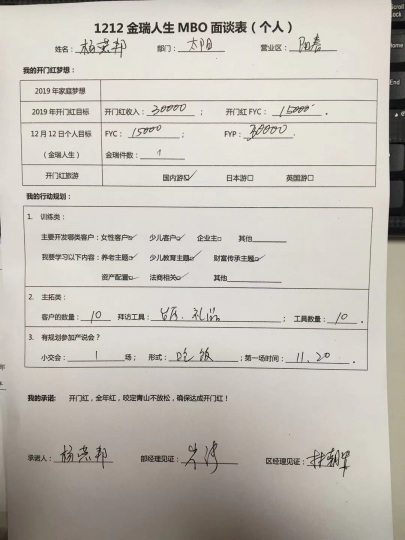 1212 金瑞人生 MBO 面谈表（个人）
姓名： 杨崇邦 部门： 太阳 营业区： 阳春
我的开门红梦想：
2019 年家庭梦想
2019 年开门红目标 开门红收入： 30000 ； 开门红 FYC： 15000
12 月 12 日个人目标 FYC： 15000 ； FYP： 30000
（金瑞人生） 金瑞件数： 1
开门红旅游 国内游☑ 日本游□ 英国游□
我的行动规划：
1. 训练类：
主要开发哪类客户：女性客户☑ 少儿客户☑ 企业主□ 其他
我要学习以下内容：养老主题☑ 少儿教育主题☑ 财富传承主题☑
资产配置□ 法商相关☑ 其他
2. 主拓类：
客户的数量： 10 拜访工具： 礼品 ； 工具数量： 10 。
3. 有规划参加产说会？
小交会： 1 场； 形式： 吃饭 ；第一场时间： 11.20 。
我的承诺： 开门红，全年红，咬定青山不放松，确保达成开门红！
承诺人： 杨崇邦 部经理见证： 区经理见证：
Scroll
Lock
End